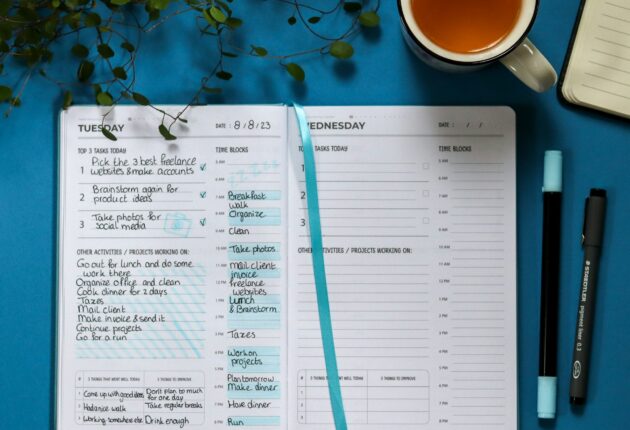 TUESDAY
DATE : 8/8/23
TOP 3 TASKS TODAY
1 Pick the 3 best freelance
websites & make accounts
2 Brainstorm again for
product ideas
3 Take photos for
social media
OTHER ACTIVITIES / PROJECTS WORKING ON:
Go out for lunch and do some
work there
Organize office and clean
Cook dinner for 2 days
Taxes
Mail client
Make invoice & send it
Continue projects
Go for a run
3 THINGS THAT WENT WELL TODAY
3 THINGS TO IMPROVE
1 Came up with good ideas
Don't plan to much
for one day
2
Take regular breaks
3 Working somewhere else
Drink enough
TIME BLOCKS
5 AM
6 AM
zzzzz
7 AM
Breakfast
walk
8 AM
Organize
9 AM
Clean
10 AM
Take photos
11 AM
Mail client
invoice
12 PM
freelance
websites
1 PM
Lunch
& Brainstorm
2 PM
3 PM
Taxes
4 PM
Work on
projects
5 PM
Plan tomorrow
6 PM
Make dinner
7 PM
Have dinner
8 PM
Run
WEDNESDAY
DATE : / /
TOP 3 TASKS TODAY
1
2
3
OTHER ACTIVITIES / PROJECTS WORKING ON:
3 THINGS THAT WENT WELL TODAY
3 THINGS TO IMPROVE
1
2
3
TIME BLOCKS
5 AM
6 AM
7 AM
8 AM
9 AM
10 AM
11 AM
12 PM
1 PM
2 PM
3 PM
4 PM
5 PM
6 PM
7 PM
8 PM
STAEDTLER
pigment liner 0.3